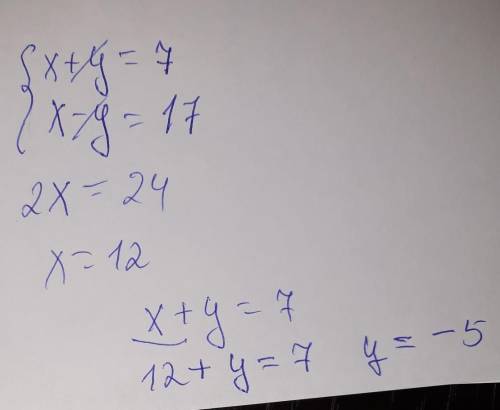 x+y=7
x-y=17
2x=24
x=12
x+y=7
12+y=7 y=-5